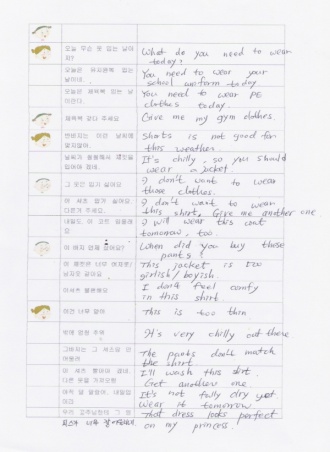 오늘 무슨 옷 입는 날이
지?
What do you need to wear
today?
오늘은 유치원복 입는
날이네.
You need to wear your
school uniform today
오늘은 체육복 입는 날
이란다.
You need to wear PE
clothes today.
체육복 갖다 주세요
Give me my gym clothes.
반바지는 이런 날씨에
맞지않아.
Shorts is not good for
this weather.
날씨가 쌀쌀해서 재킷을
입어야 겠네.
It's chilly, so you should
wear a jacket.
그 옷은 입기 싫어요
I don't want to wear
those clothes.
이 셔츠 입기 싫어요
다른거 주세요.
I don't want to wear
this shirt, Give me another one
내일도 이 코트 입을래
요
I will wear this coat
tomorrow, too.
이 바지 언제 샀어요?
When did you buy these
pants?
이 재킷은 너무 여자옷/
남자옷 같아요
This jacket is too
girlish / boyish.
이셔츠 불편해요
I don't feel comfy
in this shirt
이건 너무 얇아
This is too thin
밖에 엄청 추워
It's very chilly out there
그바지는 그 셔츠랑 안
어울려
The pants don't match
the shirt
이 셔츠 빨아야 겠네.
다른 옷을 가져오렴
I'll wash this shirt.
Get another one
아직 덜 말랐어. 내일입
어라
It's not fully dry yet
wear it tomorrow.
우리 공주님한테 그 원
피스가 너무 잘 어울린다.
That dress looks perfect
on my princess.